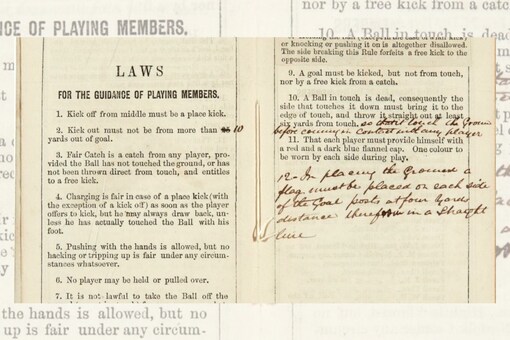 NCE OF PLAYING MEMBERS.
nor by a free kick from a catch
10. A Ball in touch is dead
LAWS
FOR THE GUIDANCE OF PLAYING MEMBERS.
1. Kick off from middle must be a place kick.
2. Kick out must not be from more than 10
yards out of goal.
3. Fair Catch is a catch from any player, pro-
vided the Ball has not touched the ground, or has
not been thrown direct from touch, and entitles
to a free kick.
4. Charging is fair in case of a place kick (with
the exception of a kick off) as soon as the player
offers to kick, but he may always draw back, un-
less he has actually touched the Ball with his
foot.
5. Pushing with the hands is allowed, but no
hacking or tripping up is fair under any circum-
stances whatsoever.
6. No player may be held or pulled over.
7. It is not lawful to take the Ball off the
or knocking or pushing it on is altogether disallowed.
The side breaking this Rule forfeits a free kick to the
opposite side.
9. A goal must be kicked, but not from touch,
nor by a free kick from a catch.
10. A Ball in touch is dead, consequently the
side that touches it down must bring it to the
edge of touch, and throw it straight out at least
six yards from touch, so that it touch the Ground
before coming in contact with any player
11. That each player must provide himself with
a red and a dark blue flannel cap. One colour to
be worn by each side during play.
12 - In playing the Ground a
flag must be placed on each side
of the Goal posts at four yards
distance therefrom in a straight
line
the hands is allowed, but no
up is fair under any circum-